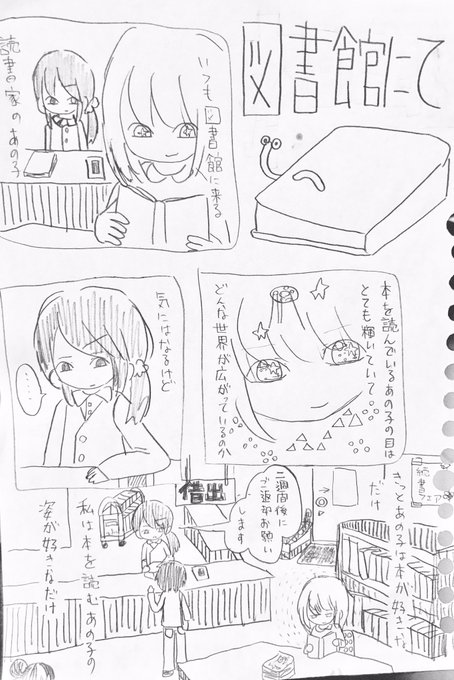 図書館にて
いつも図書館に来る
読書家のあの子
本を読んでいるあの子の目は
とても輝いていて
どんな世界が広がっているのか
気にはなるけど
……
きっとあの子は本が好きで
だけ
借出
二週間後に
ご返却お願い
します
私は本を読むあの子の
姿が好きなだけ